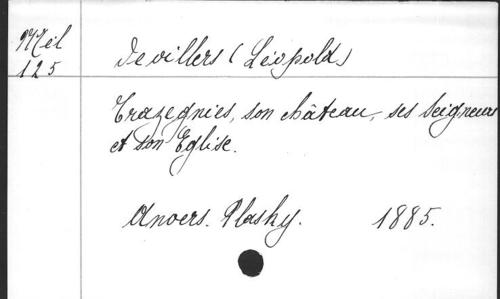 Mél
125
Devillers (Léopold)
Trazegnies, son château, ses seigneurs
et son Eglise.
Anvers. Plasky. 1885.